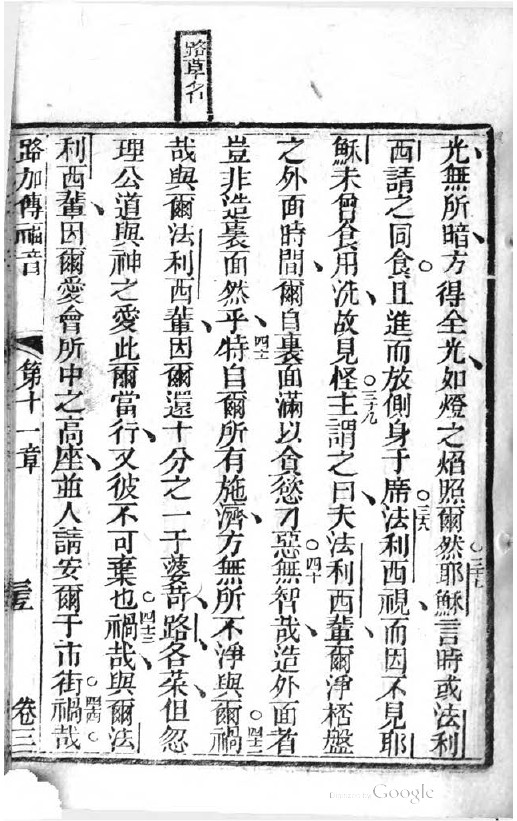 路草名
光無所暗方得全光如燈之焰照爾然○三十七耶穌言時或法利
西請之同食○且進而放側身于席○三八法利西視而因不見耶
穌未曾食用洗故見怪○三十九主謂之曰夫法利西輩爾淨桮盤
之外面時間爾自裏面滿以貪慾刁惡○四十無智哉造外面者
豈非造裏面然乎四十一特自爾所有施濟方無所不淨與爾○四十二禍
哉與爾法利西輩因爾還十分之一于薆苛路各菜但忽
理公道與神之愛此爾當行又彼不可棄也○四十三禍哉與爾法
利西輩因爾愛會所中之高座並人請安爾于市街○四十四禍哉○
路加傳福音 第十一章 卷三
Digitized by Google